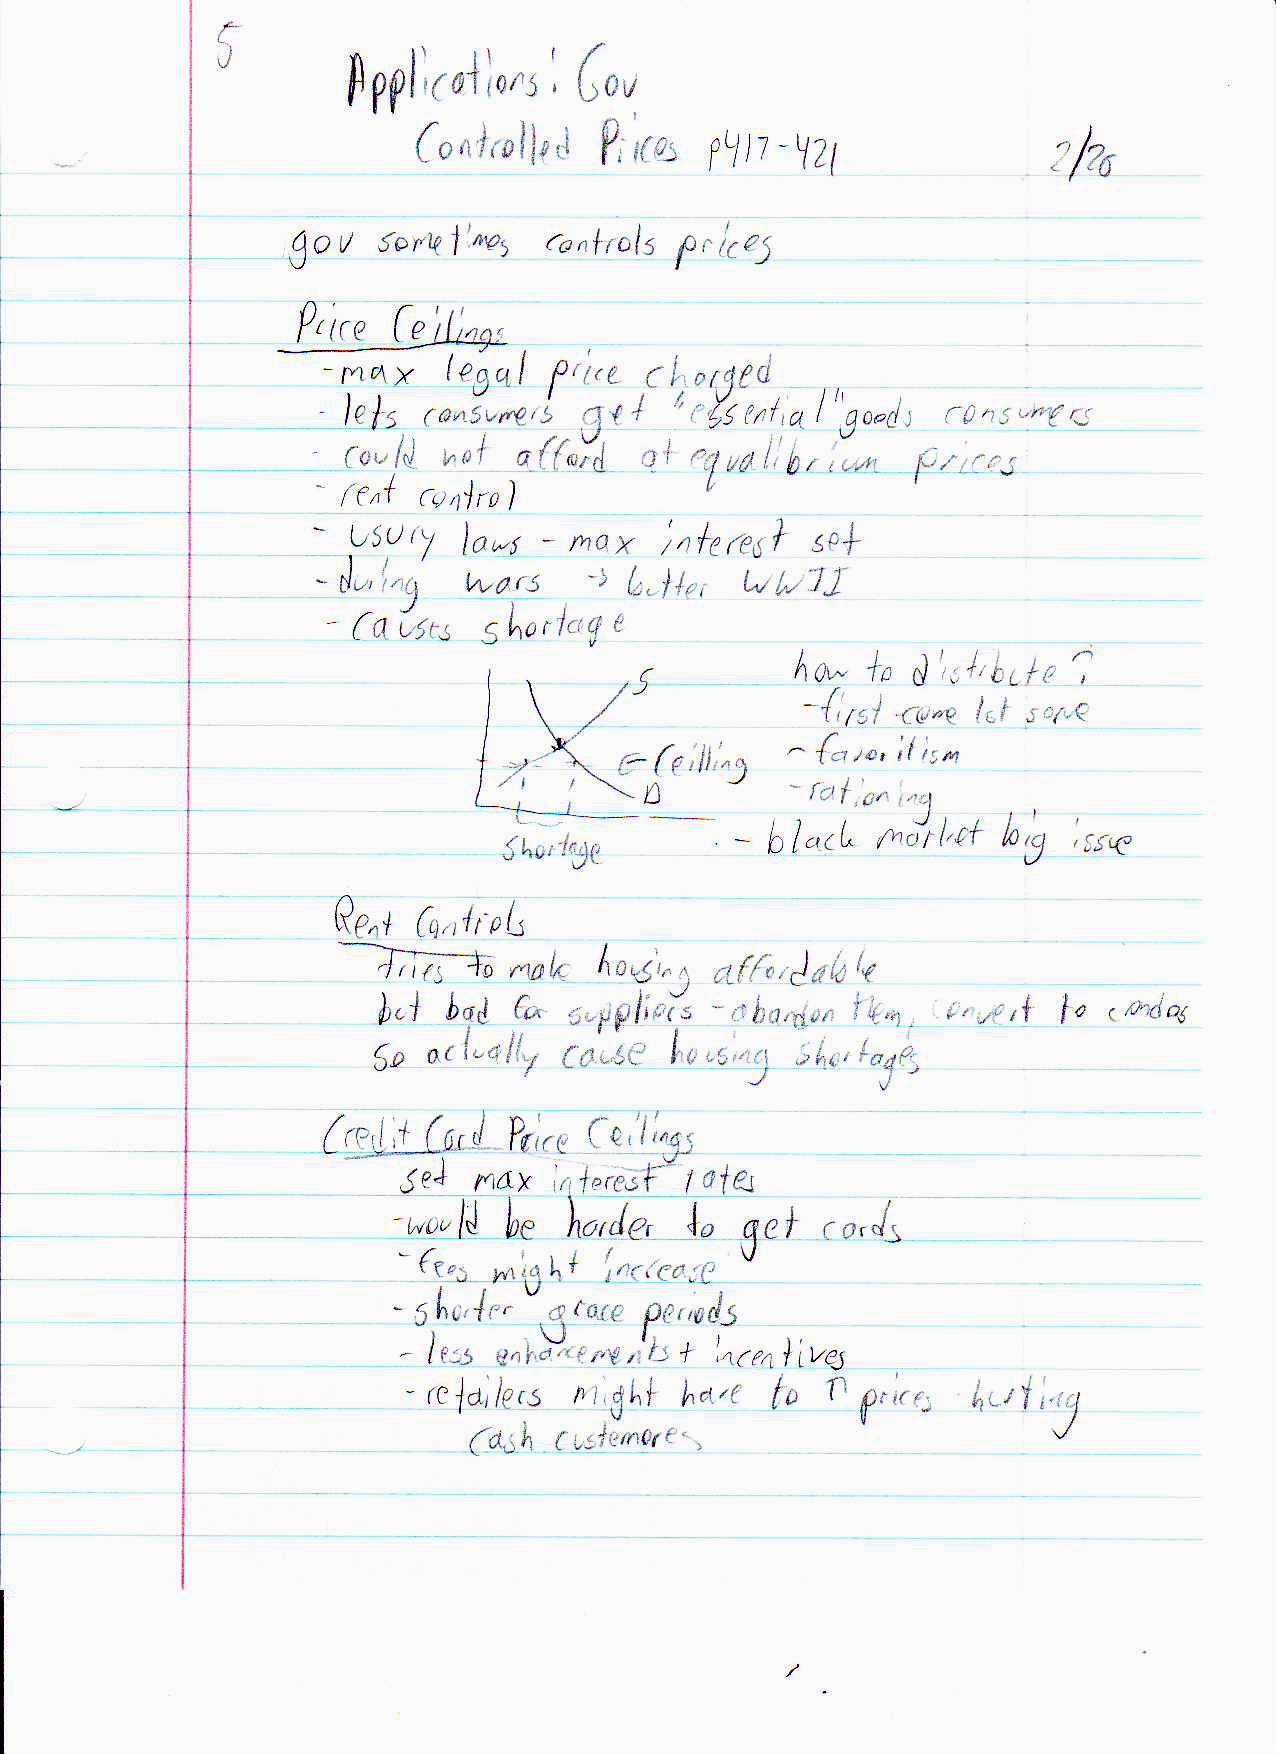 5
Applications: Gov
Controlled Prices p417-421
2/20
gov sometimes controls prices
Price Ceilings
-max legal price charged
- lets consumers get "essential" goods consumers
- could not afford at equalibrium prices
- rent control
- usury laws - max interest set
-during wars → butter WWII
- causes shortage
S
← Ceilling
D
Shortage
how to distibute?
-first come 1st serve
- favoritism
- rationing
- black market big issue
Rent Controls
tries to make housing affordable
but bad for suppliers - abandon them, convert to condos
so actually cause housing shortages
Credit Card Price Ceilings
set max interest rates
-would be harder to get cards
- fees might increase
- shorter grace periods
- less enhancements + incentives
- retailers might have to ↑ prices hurting
cash custemores